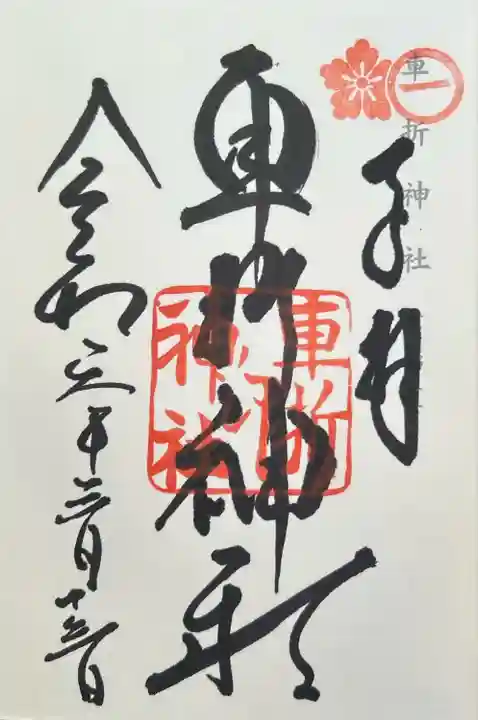 車折神社
奉拝
車折神社
車折
神社
令和 年三月